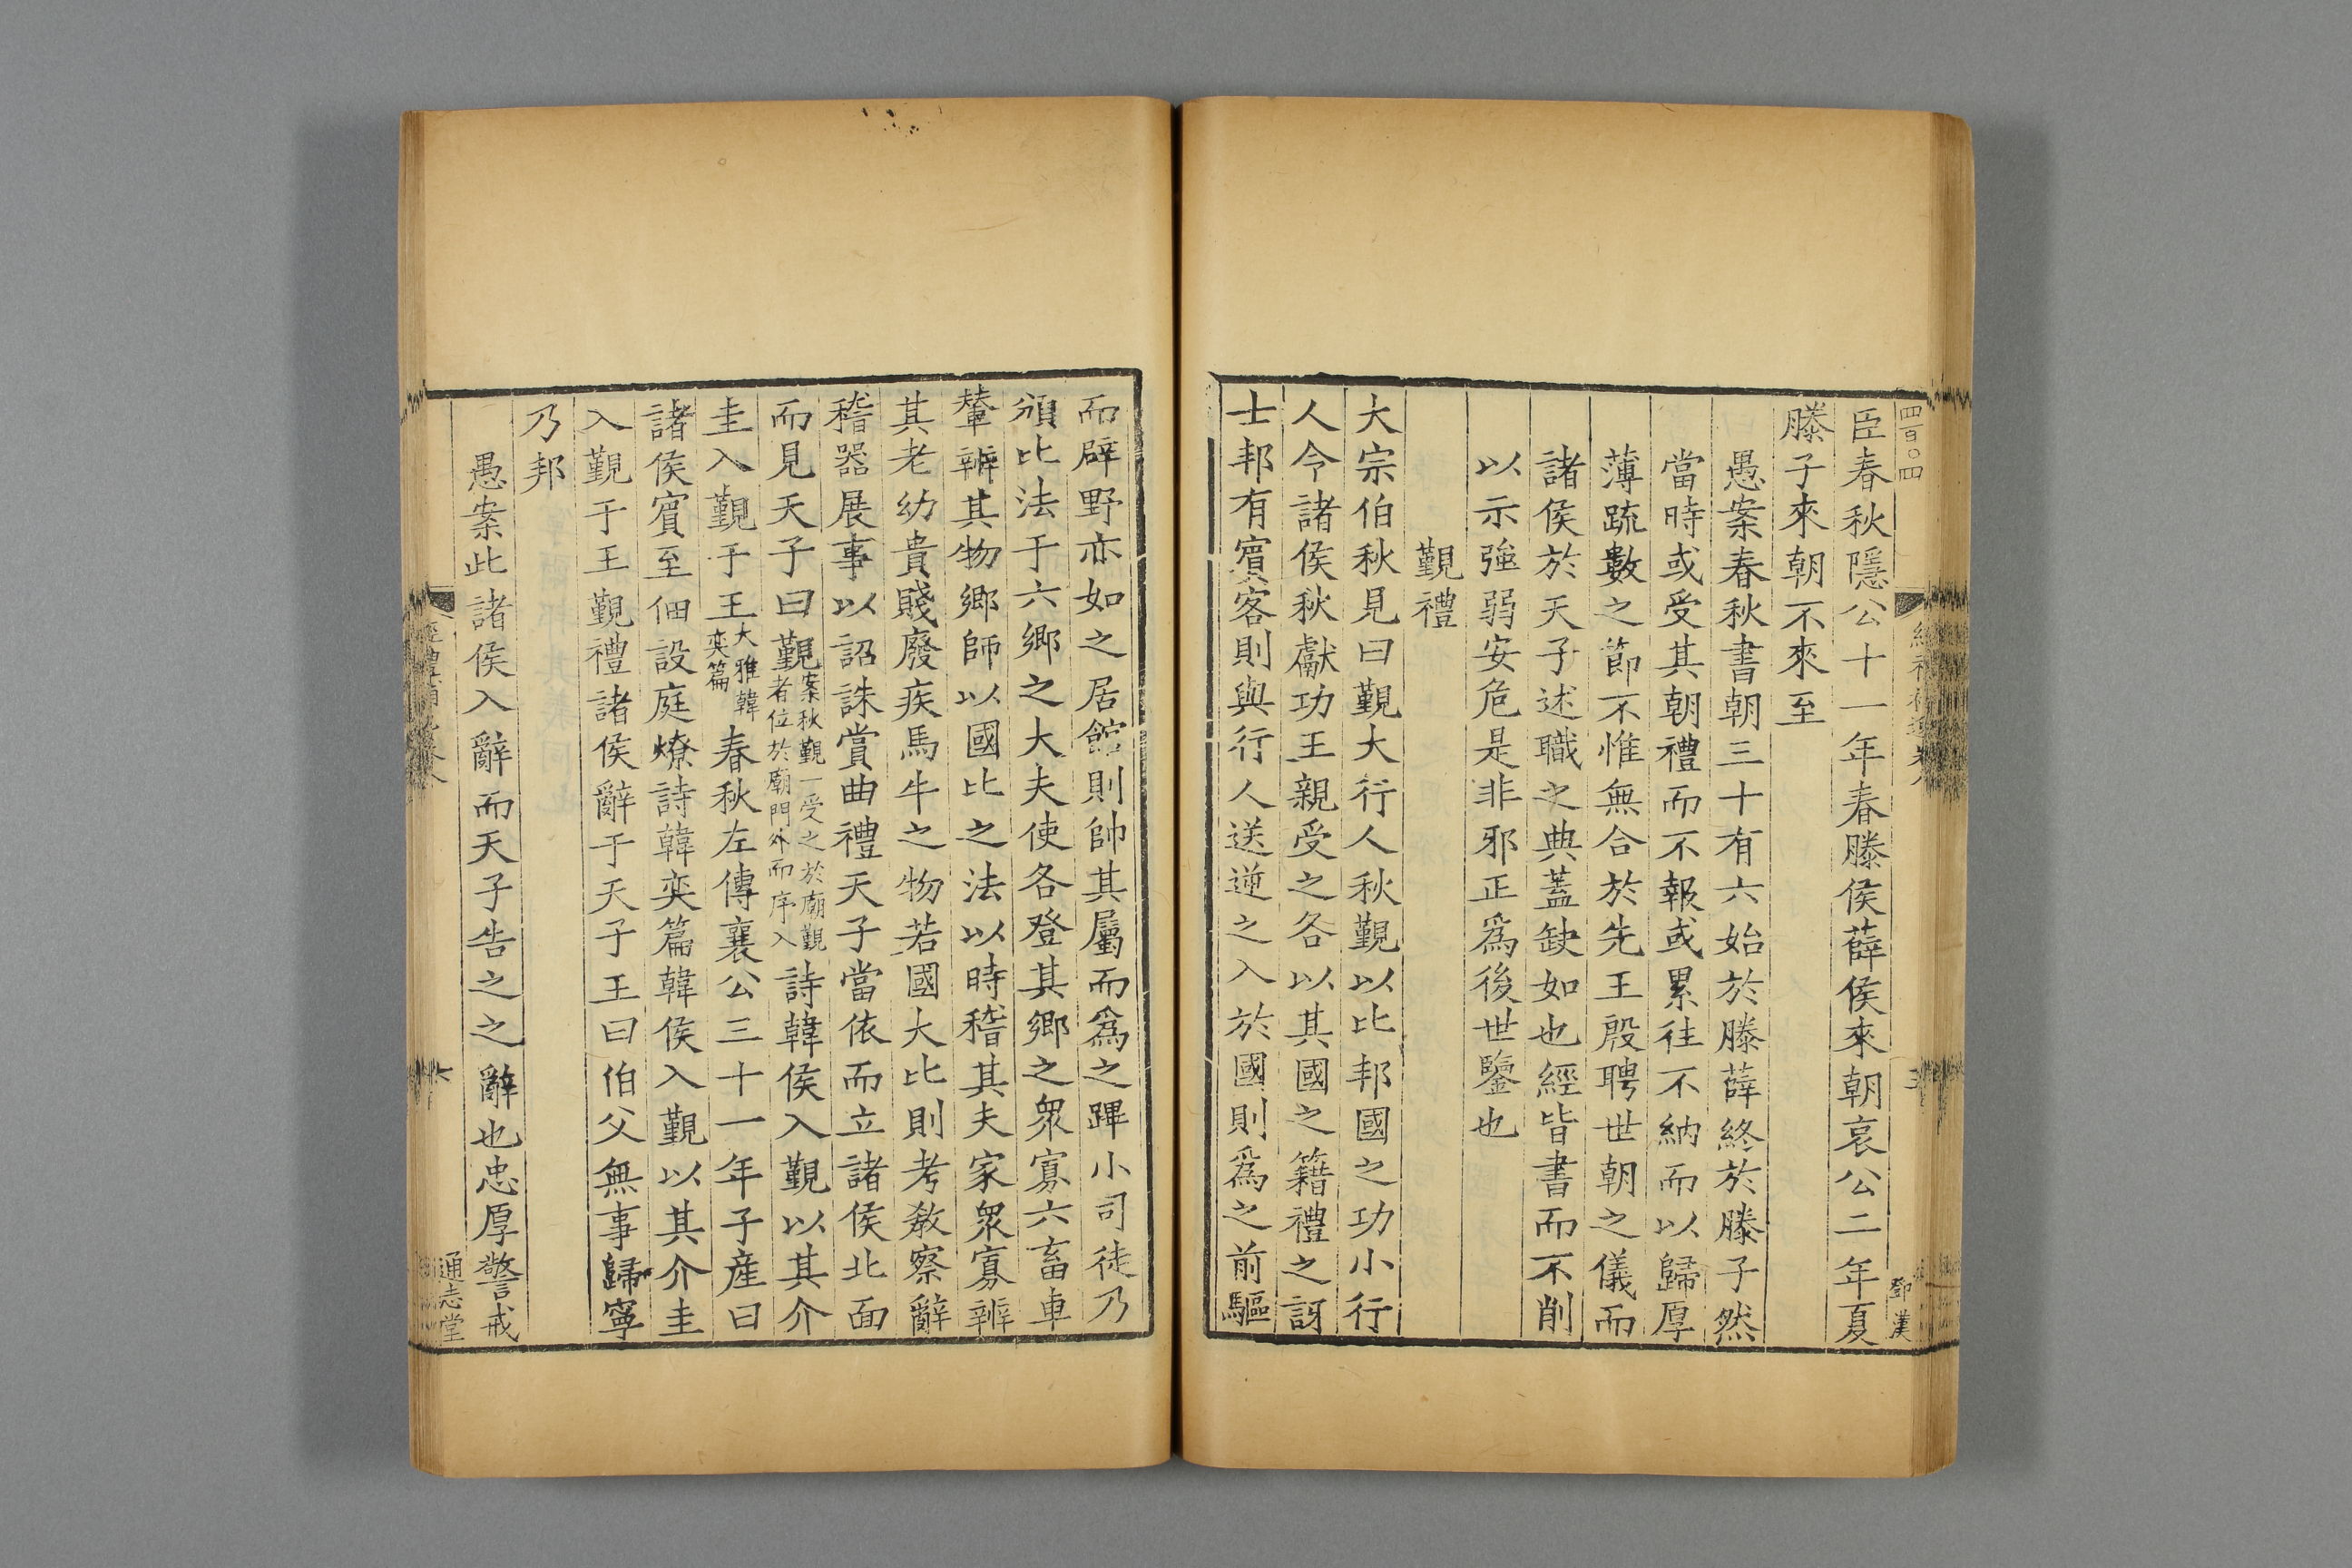 四百〇四
鄧漢
臣春秋隱公十一年春滕侯薛侯來朝哀公二年夏
滕子來朝不來至
愚案春秋書朝三十有六始於滕薛終於滕子然
當時或受其朝禮而不報或累往不納而以歸厚
薄疏數之節不惟無合於先王殷聘世朝之儀而
諸侯於天子述職之典蓋缺如也經皆書而不削
以示強弱安危是非邪正爲後世鑒也
覲禮
大宗伯秋見曰覲大行人秋覲以比邦國之功小行
人令諸侯秋獻功王親受之各以其國之籍禮之訝
士邦有賓客則與行人送逆之入於國則爲之前驅
而辟野亦如之居館則帥其屬而爲之蹕小司徒乃
頒比法于六鄉之大夫使各登其鄉之衆寡六畜車
輦辨其物鄉師以國比之法以時稽其夫家衆寡辨
其老幼貴賤廢疾馬牛之物若國大比則考教察辭
稽器展事以詔誅賞曲禮天子當依而立諸侯北面
而見天子曰覲案秋覲一受之於廟覲者位於廟門外而序入詩韓侯入覲以其介
圭入覲于王大雅韓奕篇春秋左傳襄公三十一年子產曰
諸侯賓至甸設庭燎詩韓奕篇韓侯入覲以其介圭
入覲于王覲禮諸侯辭于天子王曰伯父無事歸寧
乃邦
愚案此諸侯入辭而天子告之之辭也忠厚警戒
通志堂